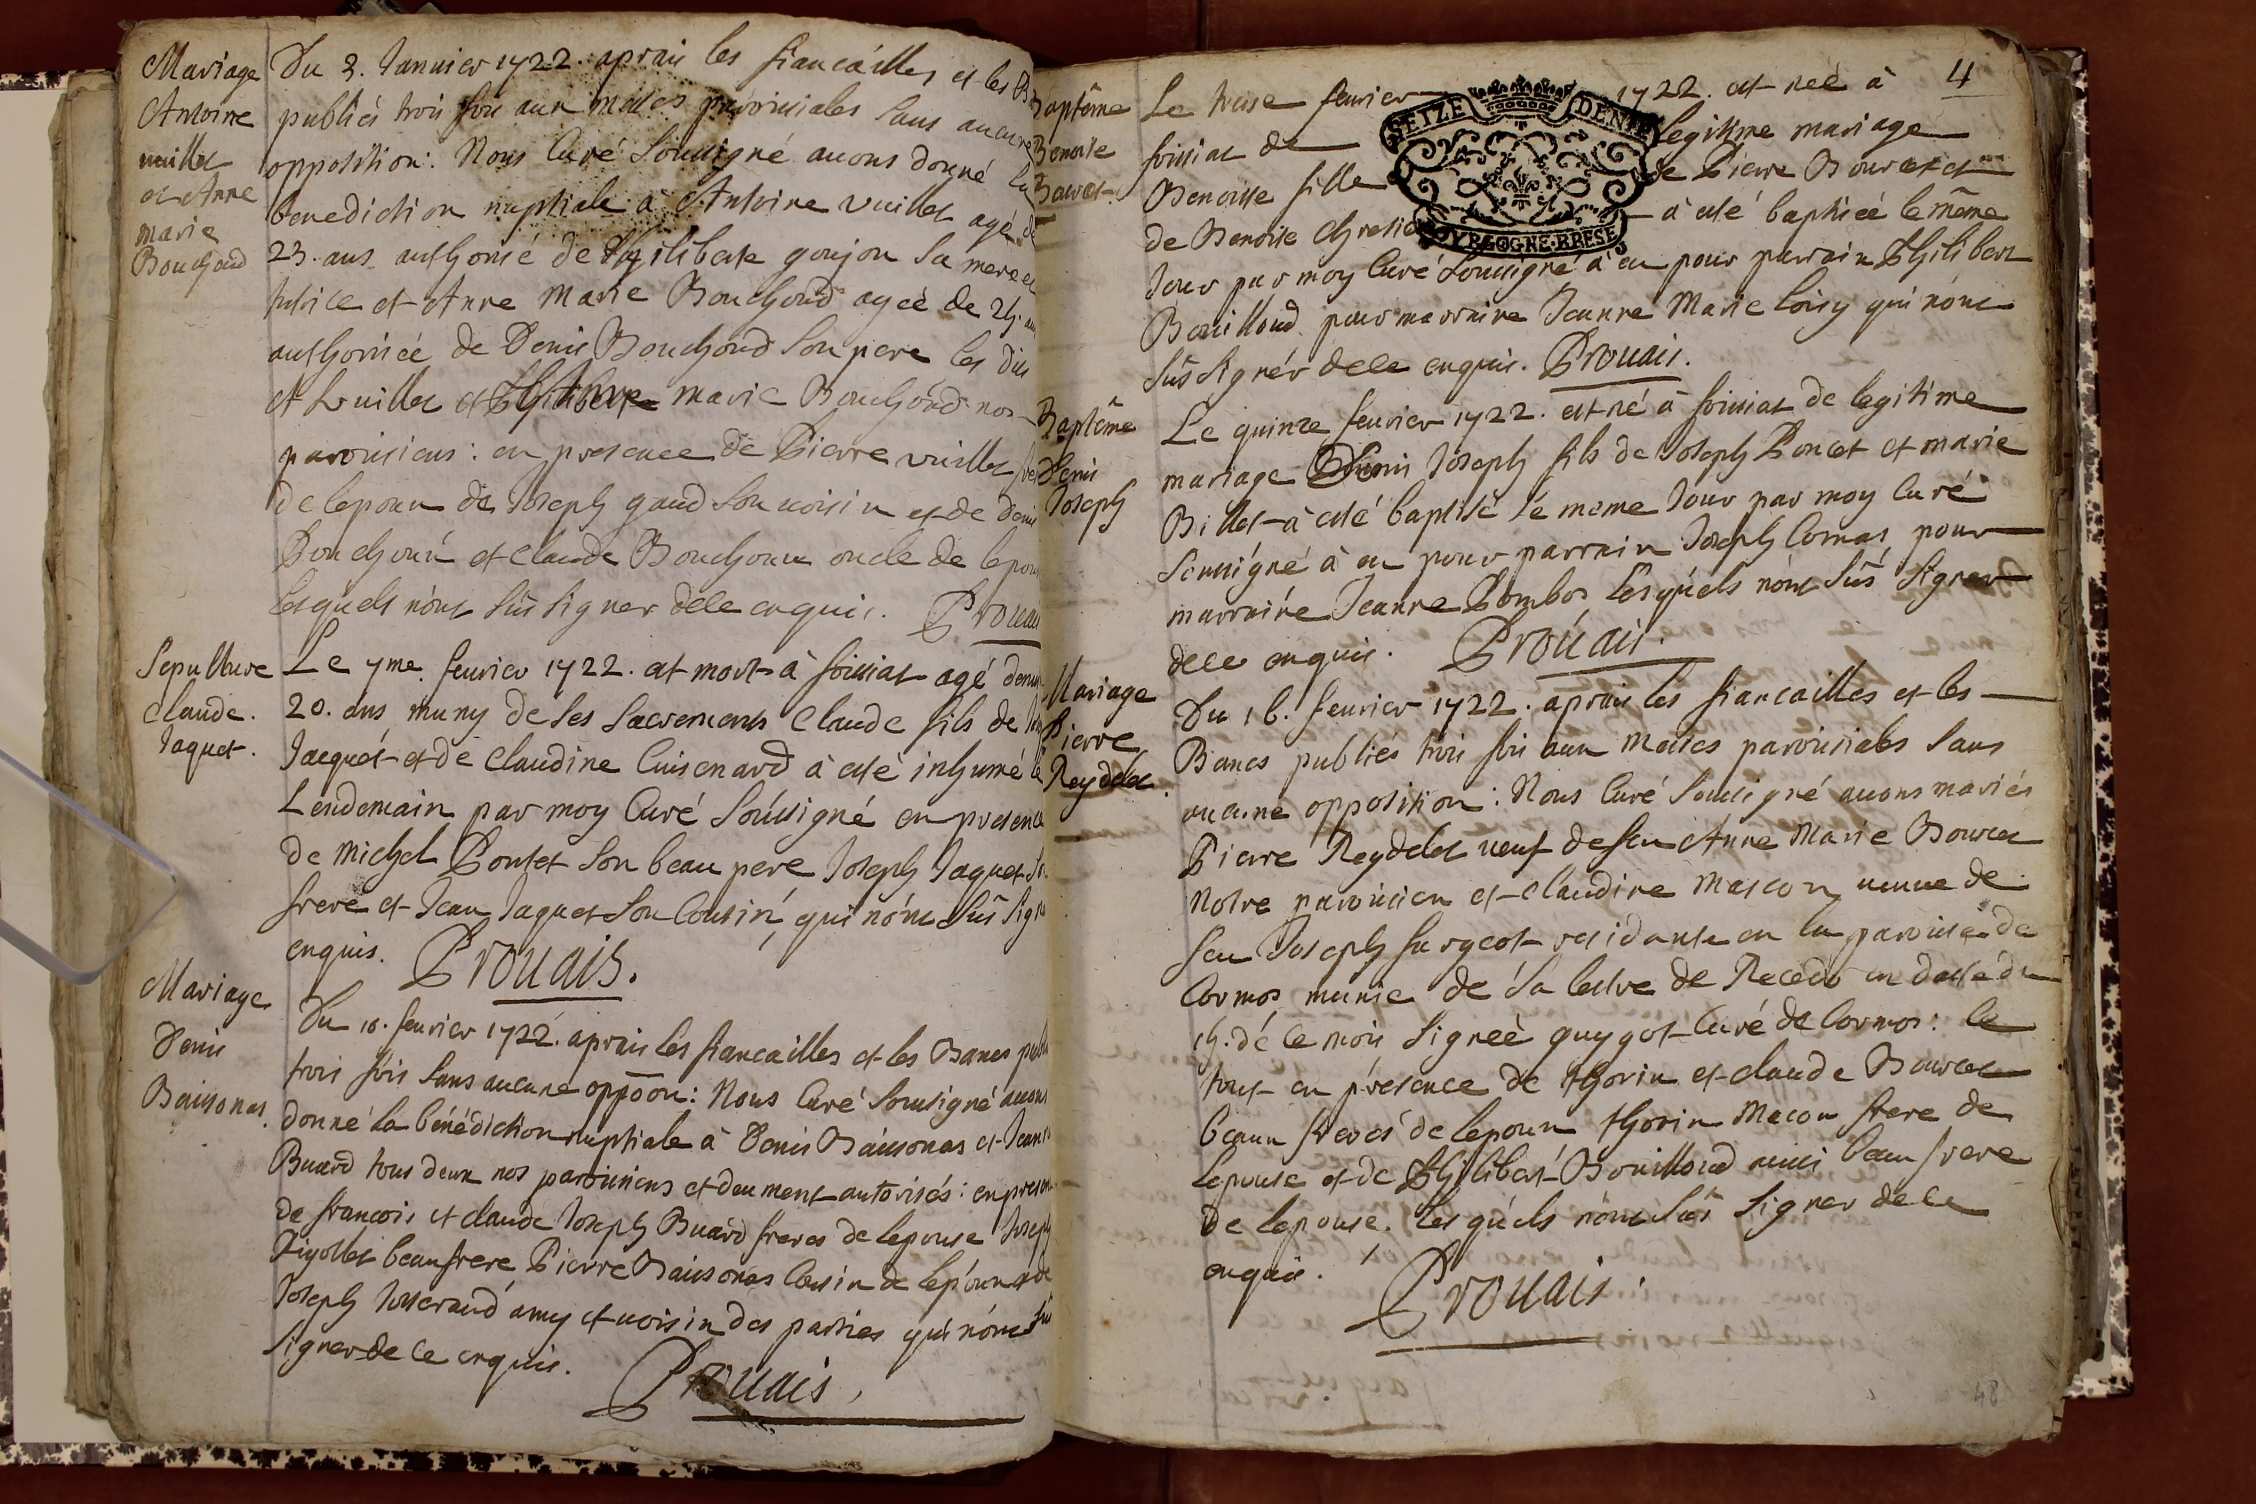 Mariage
Antoine
vuillet
et Anne
marie
Bouchoud
Du 3. Januier 1722. aprais les fiancailles et les
publiés trois fois aux messes paroissiales sans aucune
opposition: Nous Curé soussigné auons donné la
benediction nuptiale à Antoine vuillet agé de
23. ans authorisé de Philiberte goujon sa mere et
tutrice et Anne Marie Bouchoud agée de 24. ans
authorisée de Denis Bouchoud son pere les dits
et vuillet et Anne marie Bouchoud nos
paroissiens: en presence de Pierre vuillet
de lepoux de Joseph gaud son uoisin et de denis
Bouchoux et claude Bouchoux oncle de
lesquels n'ont sus signer dece enquis. Prouais
Sepulture
claude.
Jaquet.
Le 7me. feurier 1722. est mort à foissiat agé denui
20. ans muny de ses sacremens claude fils de
Jacquet et de claudine Cuisenard à esté inhumé le
Lendemain par moy Curé soussigné en presence
de michel Poncet son beau pere Joseph Jaquet
frere et Jean Jaquet son Cousin, qui n'ont sus
enquis. Prouais.
Mariage
Denis
Baisonas.
Du 10. feurier 1722. aprais les fiancailles et les Bancs
trois fois sans aucune oppõon: Nous Curé soussigné auons
donné la bénédiction nuptiale à Denis Baisonas et
Buard tous deux nos paroissiens et deument autorisés: en
de francois et claude Joseph Buard freres de lepouse Joseph
Pigollet beaufrere Pierre Baisonas Cousin de lepoux et de
Joseph Josserand amy et uoisin des parties qui n'ont sus
signer de ce enquis. Prouais.
4
SEIZE DENIE
BOVRGOGNE.BRESE
Baptême
Benoite
Bouret
Le treise feurier 1722. est née à
foissiat de legitime mariage
Benoite fille de Pierre Bouret et
de Benoite chretie à esté baptisée le même
Jour par moy Curé soussigné à eu pour parrain Philibert
Bouilloud pour marraine Jeanne Marie loisy qui n'ont
sus signér dece enquis. Prouais.
Baptême
Denis
Joseph
Le quinze feurier 1722. est né à foissiat de legitime
mariage Denis Joseph fils de Joseph Poncet et marie
Billet à esté baptisé le meme Jour par moy Curé
soussigné à eu pour parrain Joseph Comas pour
marraine Jeanne Pombos lesquels n'ont sus signer
dece enquis. Prouais.
Mariage
Pierre
Reydelet.
Du 16. feurier 1722. aprais les fiancailles et les
Bancs publiés trois fois aux messes paroissiales sans
aucune opposition: Nous Curé soussigné auons mariés
Pierre Reydelet ueuf de feu Anne Marie Bouret
notre paroissien et claudine Mascon ueuue de
feu Joseph fargeot residante en la paroisse de
Cormos munie de sa lestre de Recedo en datte du
14. de ce mois signeé guygot Curé de Cormos: le
tout en présence de thorin et claude Bouret
beaux freres de lepoux thorin Macon frere de
Lepouse et de Philibert Bouilloud aussi beau frere
de lepouse. Lesquels n'ont sus signer de ce
enquis. Prouais.
48